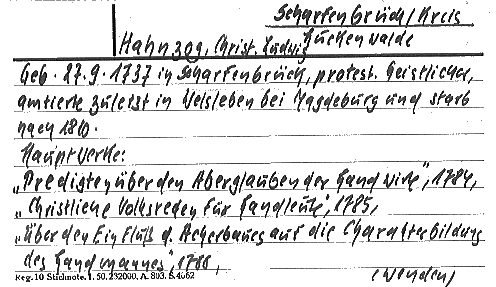 Scharfenbrück/Kreis
Luckenwalde
Hahnzog, Christ. Ludwig
Geb. 27.9.1737 in Scharfenbrück, protest. Geistlicher,
amtierte zuletzt in Welsleben bei Magdeburg und starb
nach 1810.
Hauptwerke:
„Predigten über den Aberglauben der Landwirte", 1784,
„Christliche Volksreden für Landleute", 1785,
„Über den Einfluß d. Ackerbaues auf die Charakterbildung
des Landmannes", 1788,
(wenden)
Reg. 10 Stichnote. 1. 50. 232000. A. 803. S. 4062